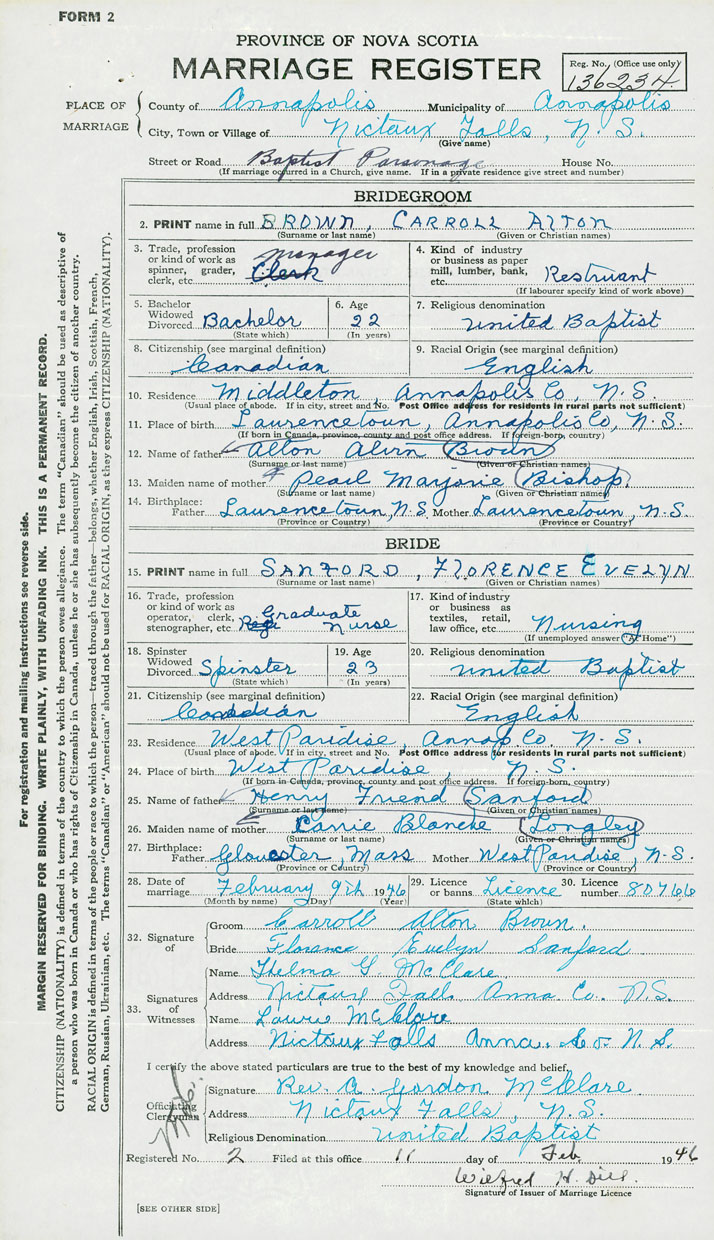 FORM 2
PROVINCE OF NOVA SCOTIA
MARRIAGE REGISTER
Reg. No. (Office use only)
136234
PLACE OF MARRIAGE
County of Annapolis Municipality of Annapolis
City, Town or Village of Nictaux Falls, N. S.
(Give name)
Street or Road Baptist Parsonage House No.
(If marriage occurred in a Church, give name. If in a private residence give street and number)
BRIDEGROOM
2. PRINT name in full BROWN, CARROLL ALTON
(Surname or last name) (Given or Christian names)
3. Trade, profession or kind of work as spinner, grader, clerk, etc. manager Clerk
4. Kind of industry or business as paper mill, lumber, bank, etc. Restruant
(If labourer specify kind of work above)
5. Bachelor Widowed Divorced Bachelor
(State which)
6. Age 22
(In years)
7. Religious denomination
United Baptist
8. Citizenship (see marginal definition)
Canadian
9. Racial Origin (see marginal definition)
English
10. Residence Middleton, Annapolis Co, N. S.
(Usual place of abode. If in city, street and No. Post Office address for residents in rural parts not sufficient)
11. Place of birth Laurencetown, Annapolis Co, N. S.
(If born in Canada, province, county and post office address. If foreign-born, country)
12. Name of father Alton Alvin Brown
(Surname or last name) (Given or Christian names)
13. Maiden name of mother Pearl Marjorie Bishop
(Surname or last name) (Given or Christian names)
14. Birthplace: Father Laurencetown, N.S. Mother Laurencetown, N.S.
(Province or Country) (Province or Country)
BRIDE
15. PRINT name in full SANFORD, FLORENCE EVELYN
(Surname or last name) (Given or Christian names)
16. Trade, profession or kind of work as operator, clerk, stenographer, etc. Graduate Nurse
17. Kind of industry or business as textiles, retail, law office, etc. Nursing
(If unemployed answer "At Home")
18. Spinster Widowed Divorced Spinster
(State which)
19. Age 23
(In years)
20. Religious denomination
United Baptist
21. Citizenship (see marginal definition)
Canadian
22. Racial Origin (see marginal definition)
English
23. Residence West Paridise, Annap Co, N. S.
(Usual place of abode. If in city, street and No. Post Office address for residents in rural parts not sufficient)
24. Place of birth West Paridise, N. S.
(If born in Canada, province, county and post office address. If foreign-born, country)
25. Name of father Henry Friend Sanford
(Surname or last name) (Given or Christian names)
26. Maiden name of mother Carrie Blanche Longley
(Surname or last name) (Given or Christian names)
27. Birthplace: Father Gloucester, Mass Mother West Paridise, N.S.
(Province or Country) (Province or Country)
28. Date of marriage February 9th 1946
(Month by name) (Day) (Year)
29. Licence or banns Licence
(State which)
30. Licence number 80766
32. Signature of
Groom Carroll Alton Brown.
Bride Florence Evelyn Sanford
33. Signatures of Witnesses
Name Thelma G. McClare
Address Nictaux Falls Anna Co. N.S.
Name Laurie McClare
Address Nictaux Falls Anna. Co. N. S.
I certify the above stated particulars are true to the best of my knowledge and belief.
Officiating Clergyman
Signature Rev. A. Gordon McClare
Address Nictaux Falls, N. S.
Religious Denomination United Baptist
Registered No. 2 Filed at this office 11 day of Feb. 1946
Wilfred H. Dill.
Signature of Issuer of Marriage Licence
[SEE OTHER SIDE]
For registration and mailing instructions see reverse side.
MARGIN RESERVED FOR BINDING. WRITE PLAINLY, WITH UNFADING INK. THIS IS A PERMANENT RECORD.
CITIZENSHIP (NATIONALITY) is defined in terms of the country to which the person owes allegiance. The term "Canadian" should be used as descriptive of
a person who was born in Canada or who has rights of Citizenship in Canada, unless he or she has subsequently become the citizen of another country.
RACIAL ORIGIN is defined in terms of the people or race to which the person—traced through the father—belongs, whether English, Irish, Scottish, French,
German, Russian, Ukrainian, etc. The terms "Canadian" or "American" should not be used for RACIAL ORIGIN, as they express CITIZENSHIP (NATIONALITY).